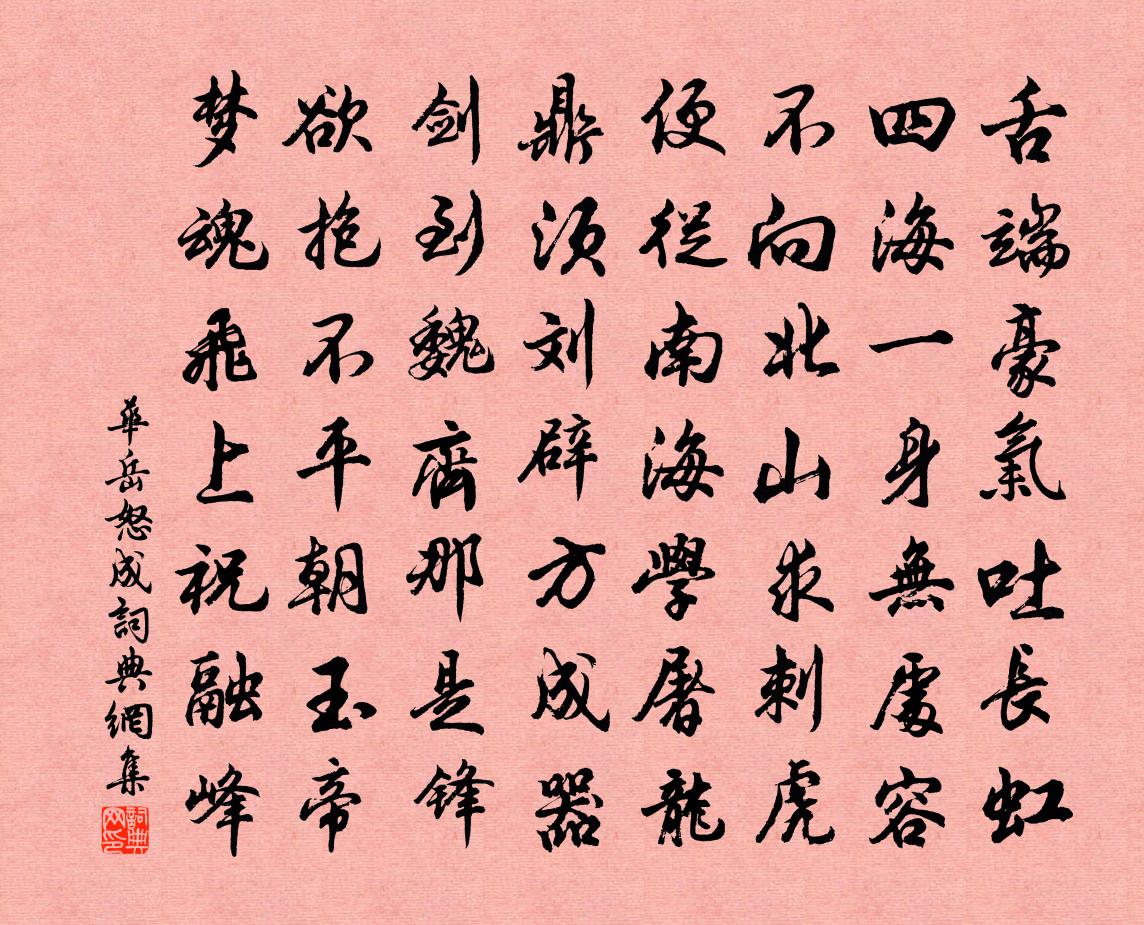 舌端豪氣吐長虹
四海一身無處容
不向北山求刺虎
便從南海學屠龍
鼎須刘辟方成器
剑到魏齊那是锋
欲抱不平朝玉帝
梦魂飛上祝融峰
華岳怒成詞典網集
詞典网印